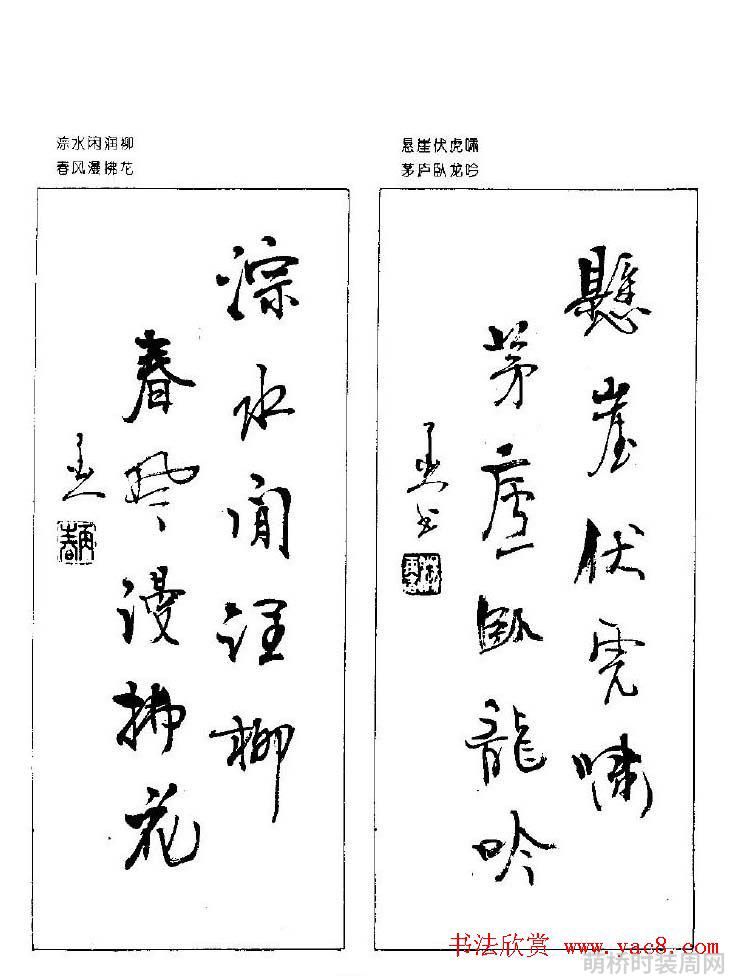 淙水闲润柳
春风漫拂花
悬崖伏虎啸
茅庐卧龙吟
懸崖伏虎嘯
茅廬臥龍吟
淙水閒潤柳
春風漫拂花
书法欣赏 www.yac8.com
萌桥时装周网